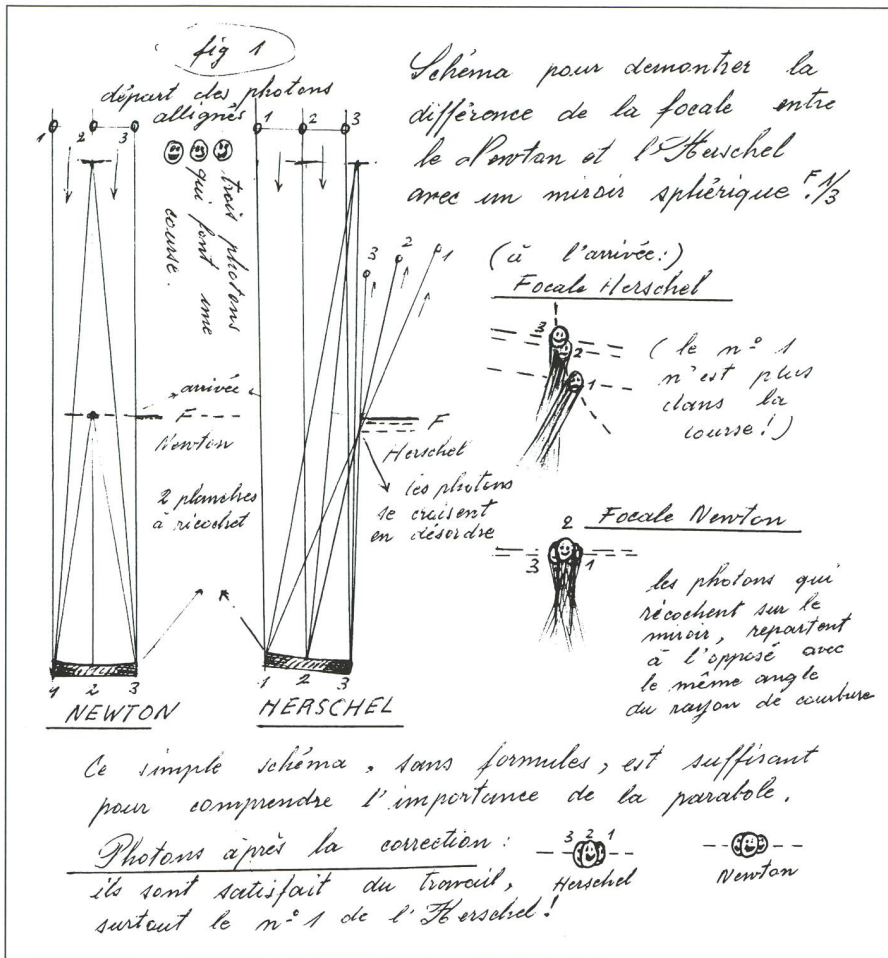 fig 1
départ des photons
allignés
1 2 3
1 2 3
trois photons
qui font une
course.
Schéma pour demontrer la
différence de la focale entre
le Newton et l'Herschel
avec un miroir sphérique F:1/3
3 2 1
(à l'arrivée:)
Focale Herschel
3
2
1
(le n° 1
n'est plus
dans la
course!)
arrivée
F
Newton
F
Herschel
2 planches
à ricochet
les photons
se croisent
en désordre
Focale Newton
2
3 1
les photons qui
récochent sur le
miroir, repartent
à l'opposé avec
le même angle
du rayon de courbure
1 2 3
1 2 3
NEWTON
HERSCHEL
Ce simple schéma, sans formules, est suffisant
pour comprendre l'importance de la parabole.
Photons àprès la correction:
3 2 1
Herschel
Newton
ils sont satisfait du travail,
surtout le n° 1 de l'Herschel!